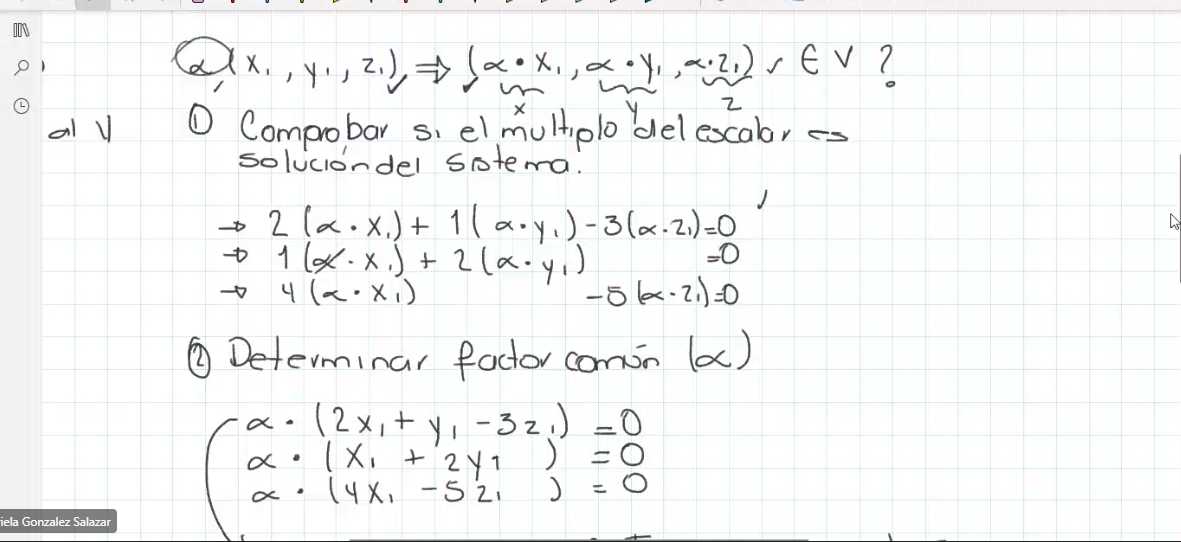 α(x₁, y₁, z₁) ⇒ (α·x₁, α·y₁, α·z₁) ✓ ∈ V ?
x y z
al V
① Comprobar si el múltiplo del escalar es
solución del sistema.
→ 2(α·x₁) + 1(α·y₁) - 3(α·z₁)=0
→ 1(α·x₁) + 2(α·y₁) =0
→ 4(α·x₁) -5(α·z₁)=0
② Determinar factor común (α)
α·(2x₁ + y₁ - 3z₁) =0
α·(x₁ + 2y₁) =0
α·(4x₁ - 5z₁) =0
iela Gonzalez Salazar